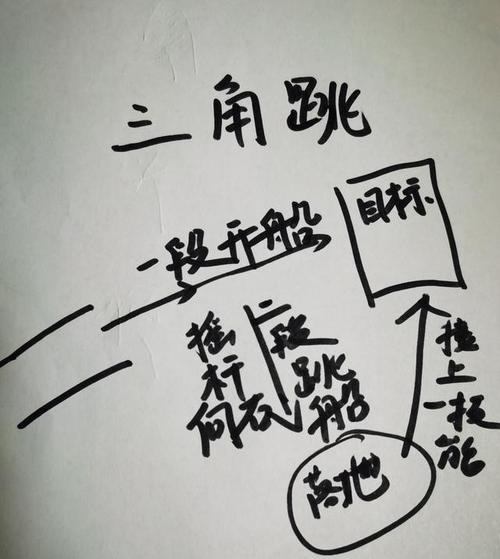 三角跳
目标
一段开船
摇杆向右
二段跳船
接上一技能
落地